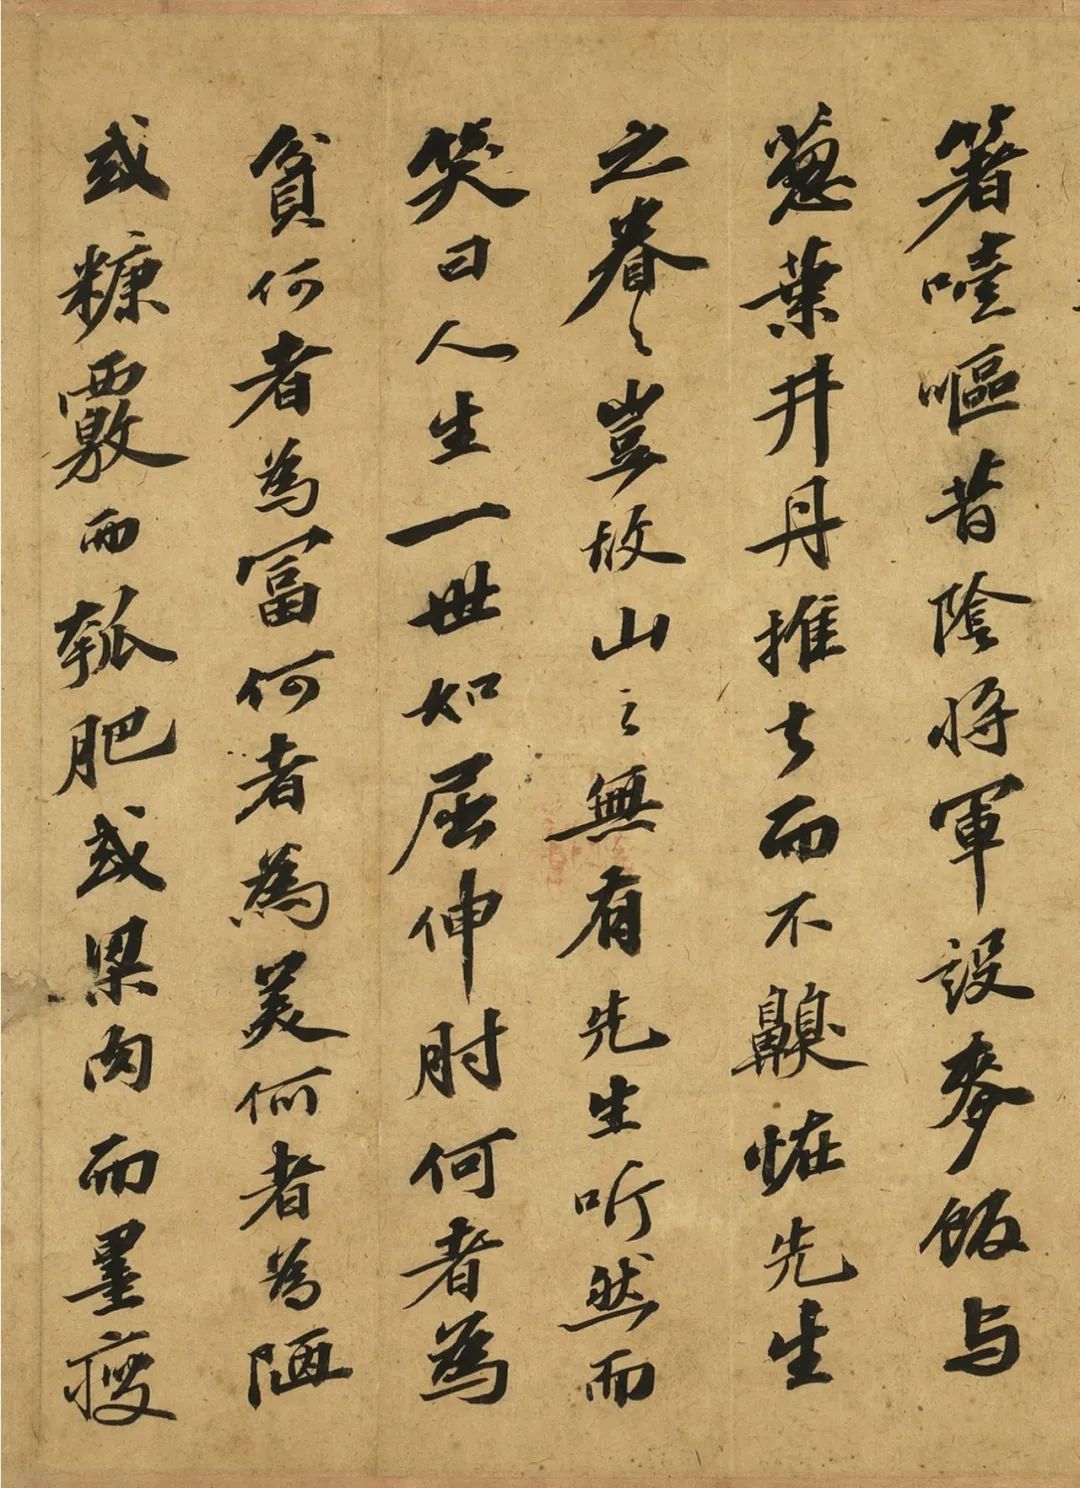 箸噎嘔昔陰将軍設麥飯与
蔥葉井丹推去而不齅恠先生
之眷〻豈故山之無有先生听然而
笑曰人生一世如屈伸肘何者為
貧何者為富何者為美何者為陋
或糠覈而瓠肥或粱肉而墨瘦